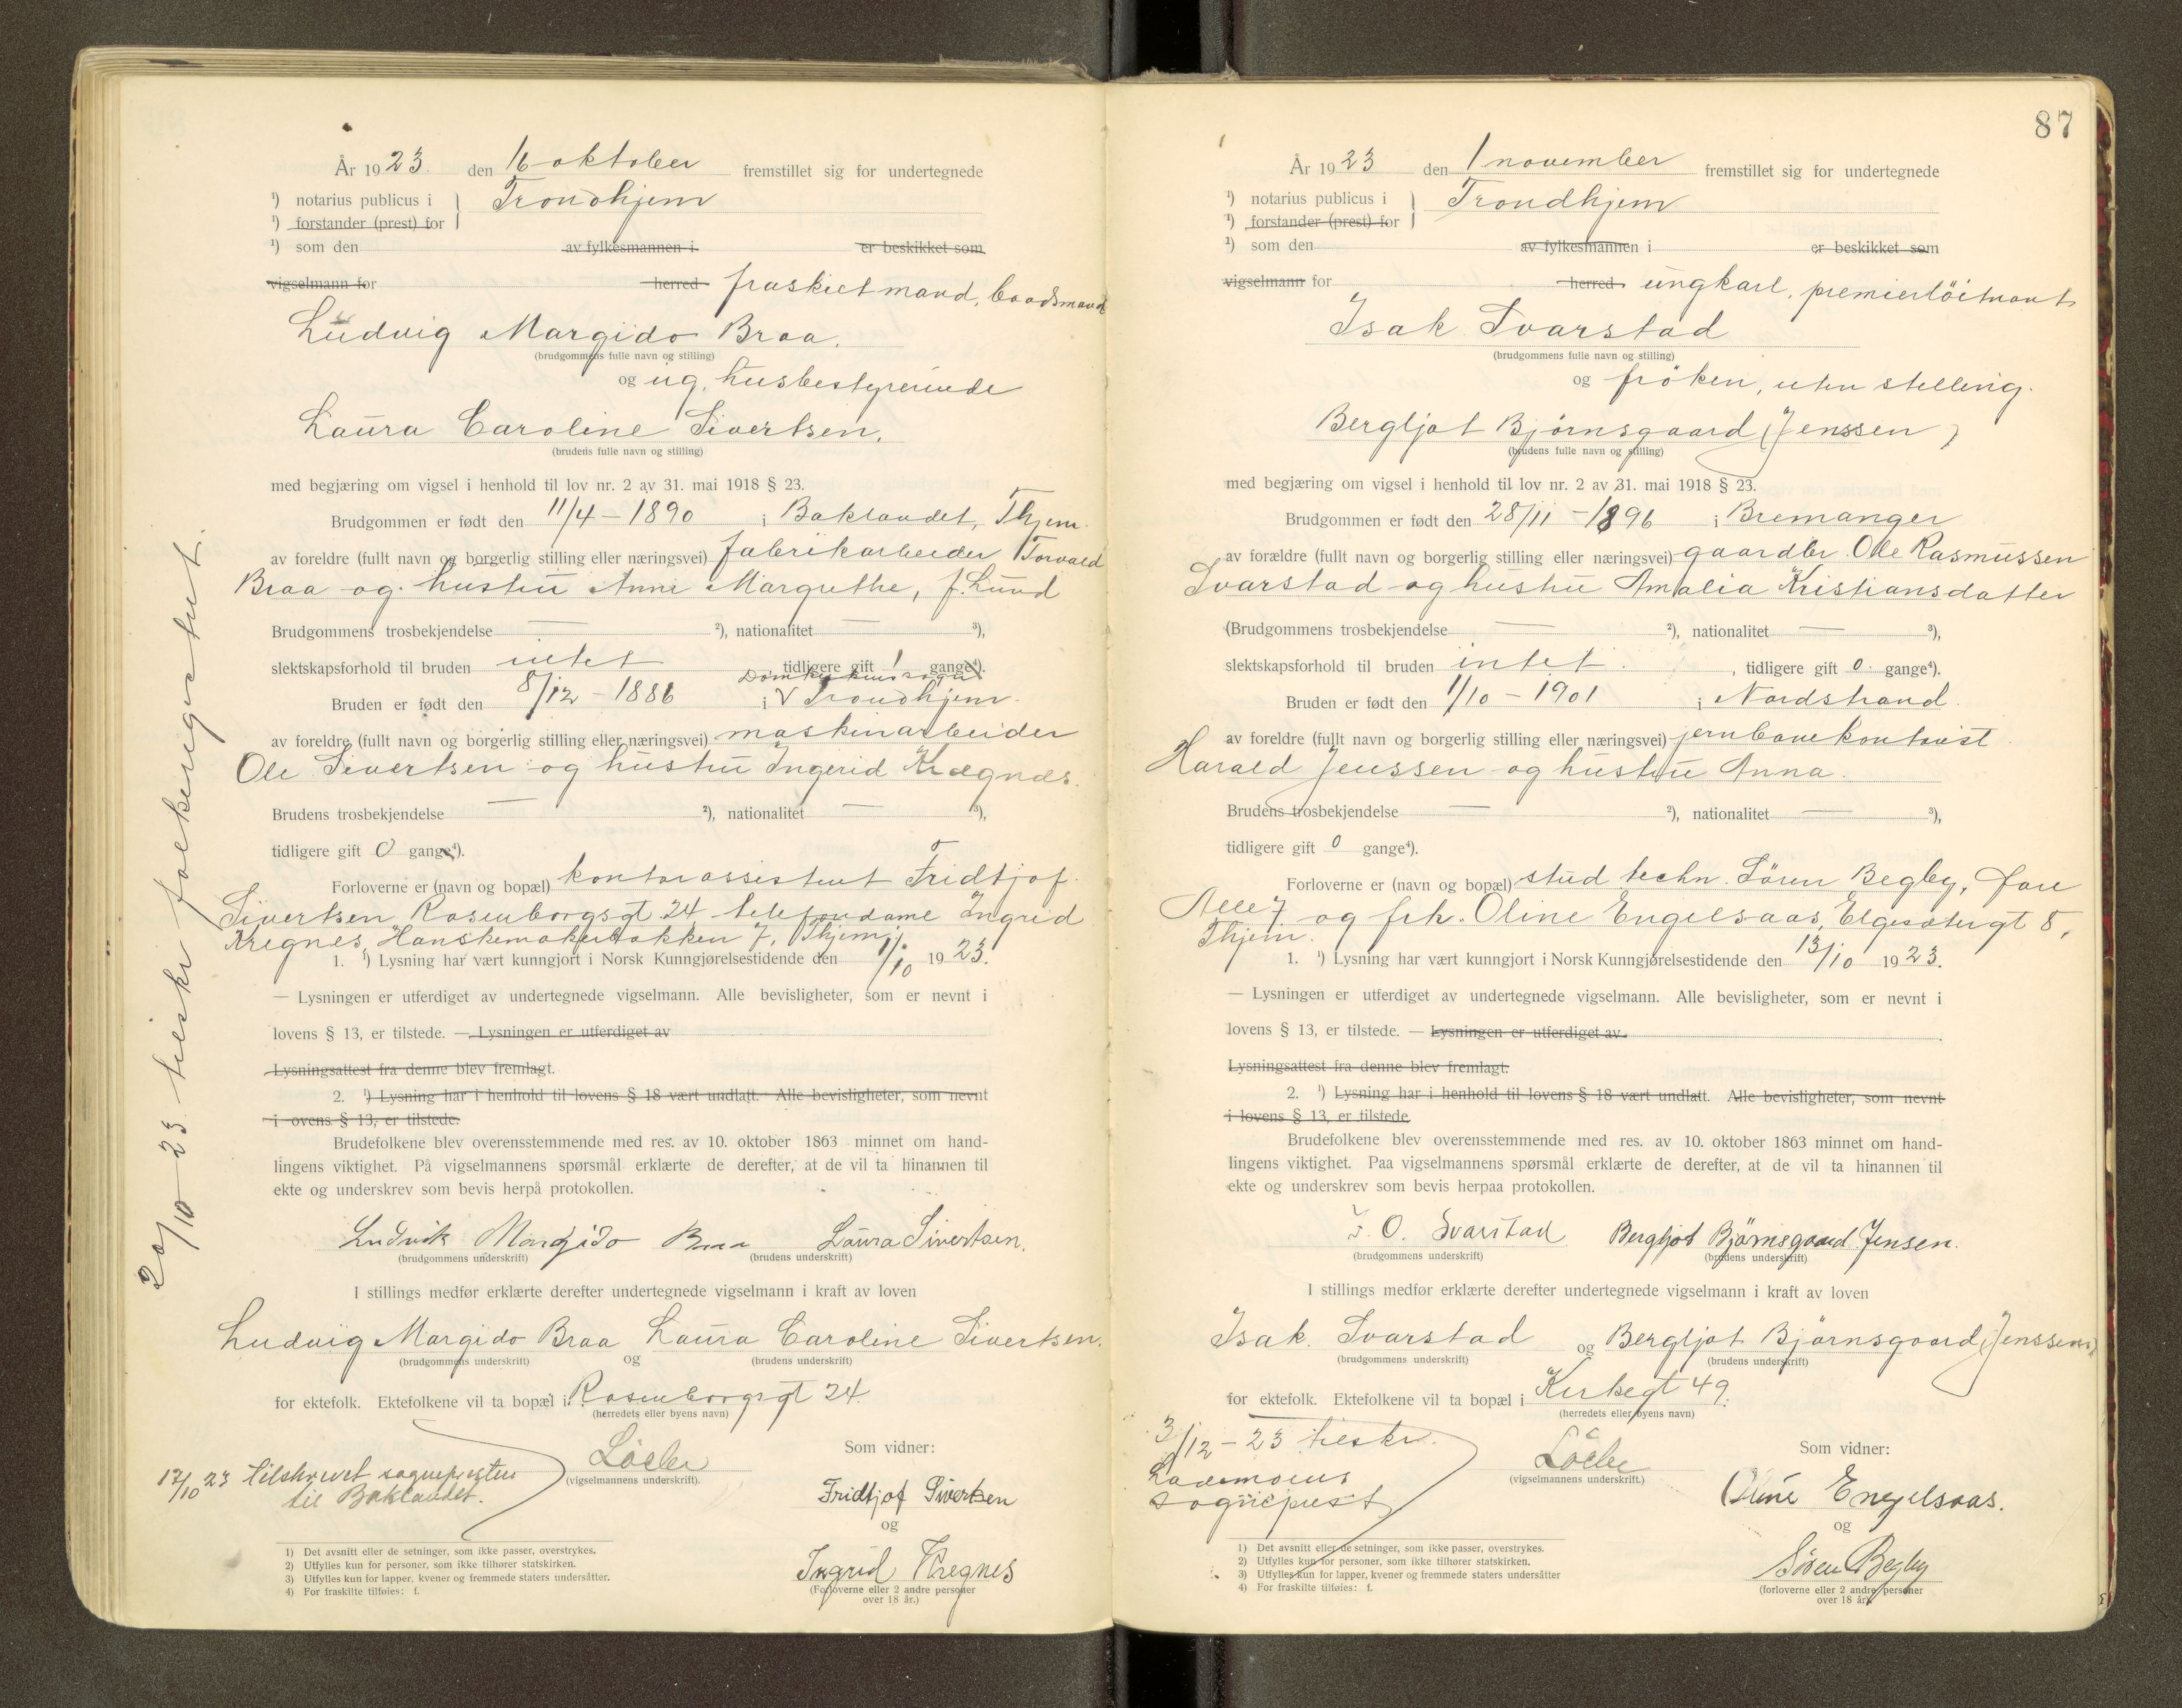 År 1923. den 16 oktober fremstillet sig for undertegnede
¹) notarius publicus i } Trondhjem
¹) forstander (prest) for
¹) som den av fylkesmannen i er beskikket som
vigselmann for herred fraskilt mand, baadsmand
Ludvig Margido Braa.
(brudgommens fulle navn og stilling)
og ug. husbestyrerinde
Laura Caroline Sivertsen.
(brudens fulle navn og stilling)
med begjæring om vigsel i henhold til lov nr. 2 av 31. mai 1918 § 23.
Brudgommen er født den 11/4 – 1890 i Baklandet, Thjem.
av foreldre (fullt navn og borgerlig stilling eller næringsvei) fabrikarbeider Torvald
Braa og hustru Anne Margrethe, f. Lund
Brudgommens trosbekjendelse — ²), nationalitet — ³),
slektskapsforhold til bruden intet , tidligere gift 1 gange⁴).
Domkirkens sogn
Bruden er født den 8/12 – 1886 i V Trondhjem.
av foreldre (fullt navn og borgerlig stilling eller næringsvei) maskinarbeider
Ole Sivertsen og hustru Ingerid Krægnæs.
Brudens trosbekjendelse — ²), nationalitet — ³),
tidligere gift 0 gange⁴).
Forloverne er (navn og bopæl) kontorassistent Fridtjof
Sivertsen Rosenborgsgt 24 telefondame Ingrid
Kregnes, Hanskemakerbakken 7, Thjem.
1. ¹) Lysning har vært kunngjort i Norsk Kunngjørelsestidende den 1/10 1923.
— Lysningen er utferdiget av undertegnede vigselmann. Alle bevisligheter, som er nevnt i
lovens § 13, er tilstede. — Lysningen er utferdiget av
Lysningsattest fra denne blev fremlagt.
2. ¹) Lysning har i henhold til lovens § 18 vært undlatt. Alle bevisligheter, som nevnt
i ovens § 13, er tilstede.
Brudefolkene blev overensstemmende med res. av 10. oktober 1863 minnet om hand-
lingens viktighet. På vigselmannens spørsmål erklærte de derefter, at de vil ta hinannen til
ekte og underskrev som bevis herpå protokollen.
Ludvik Margido Braa Laura Sivertsen.
(brudgommens underskrift) (brudens underskrift)
I stillings medfør erklærte derefter undertegnede vigselmann i kraft av loven
Ludvig Margido Braa Laura Caroline Sivertsen.
(brudgommens underskrift) og (brudens underskrift)
for ektefolk. Ektefolkene vil ta bopæl i Rosenborgsgt 24.
(herredets eller byens navn)
Som vidner:
(vigselmannens underskrift).
17/10 23 tilskrevet sognepresten
til Baklandet.
Fridtjof Sivertsen
og
Ingrid Kregnes
(Forloverne eller 2 andre personer
over 18 år.)
1) Det avsnitt eller de setninger, som ikke passer, overstrykes.
2) Utfylles kun for personer, som ikke tilhører statskirken.
3) Utfylles kun for lapper, kvener og fremmede staters undersåtter.
4) For fraskilte tilføies: f.
20/10 – 23 tilskr folkeregistret.
87
År 1923 den 1 november fremstillet sig for undertegnede
¹) notarius publicus i } Trondhjem
¹) forstander (prest) for
¹) som den av fylkesmannen i er beskikket som
vigselmann for herred ungkarl, premierløitnant
Isak Svarstad
(brudgommens fulle navn og stilling)
og frøken, uten stilling.
Bergljot Bjørnsgaard (Jenssen)
(brudens fulle navn og stilling)
med begjæring om vigsel i henhold til lov nr. 2 av 31. mai 1918 § 23.
Brudgommen er født den 28/11 – 1896 i Bremanger
av forældre (fullt navn og borgerlig stilling eller næringsvei) gaardbr. Ole Rasmussen
Svarstad og hustru Amalia Kristiansdatter
(Brudgommens trosbekjendelse — ²), nationalitet — ³),
slektskapsforhold til bruden intet. , tidligere gift 0 gange⁴).
Bruden er født den 1/10 – 1901 i Nordstrand.
av foreldre (fullt navn og borgerlig stilling eller næringsvei) jernbanekontorist
Harald Jenssen og hustru Anna.
Brudens trosbekjendelse — ²), nationalitet — ³),
tidligere gift 0 gange⁴).
Forloverne er (navn og bopæl) stud techn. Sören Begby,
Alle 7 og frk. Oline Engelsaas, Elgesætergt 8,
Thjem.
1. ¹) Lysning har vært kunngjort i Norsk Kunngjørelsestidende den 13/10 1923.
— Lysningen er utferdiget av undertegnede vigselmann. Alle bevisligheter, som er nevnt i
lovens § 13, er tilstede. — Lysningen er utferdiget av
Lysningsattest fra denne blev fremlagt.
2. ¹) Lysning har i henhold til lovens § 18 vært undlatt. Alle bevisligheter, som nevnt
i lovens § 13, er tilstede.
Brudefolkene blev overensstemmende med res. av 10. oktober 1863 minnet om hand-
lingens viktighet. Paa vigselmannens spørsmål erklærte de derefter, at de vil ta hinannen til
ekte og underskrev som bevis herpaa protokollen.
I. O. Svarstad Bergljot Bjørnsgaard Jensen.
(brudgommens underskrift) (brudens underskrift)
I stillings medfør erklærte derefter undertegnede vigselmann i kraft av loven
Isak Svarstad og Bergljot Bjørnsgaard (Jenssen)
(brudgommens underskrift) (brudens underskrift)
for ektefolk. Ektefolkene vil ta bopæl i Kirkegt 49.
(herredets eller byens navn)
3/12 – 23 tilskr.
Lademoens
sogneprest
Som vidner:
(vigselmannens underskrift.)
Oline Engelsaas.
og
Sören Begby
(forloverne eller 2 andre personer
over 18 år).
1) Det avsnitt eller de setninger, som ikke passer, overstrykes.
2) Utfylles kun for personer, som ikke tilhører statskirken.
3) Utfylles kun for lapper, kvener og fremmede staters undersåtter
4) For fraskilte tilføies: f.